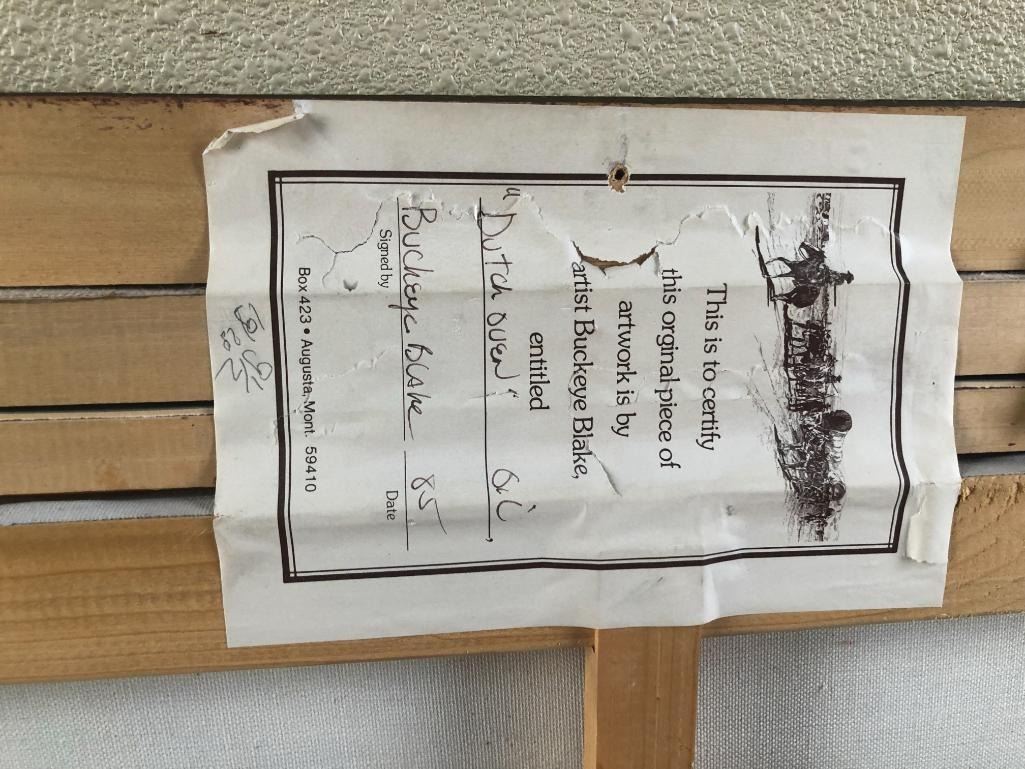 This is to certify
this orginal piece of
artwork is by
artist Buckeye Blake,
entitled
"Dutch oven" oil,
Buckeye Blake 85
Signed by Date
Box 423 • Augusta, Mont. 59410